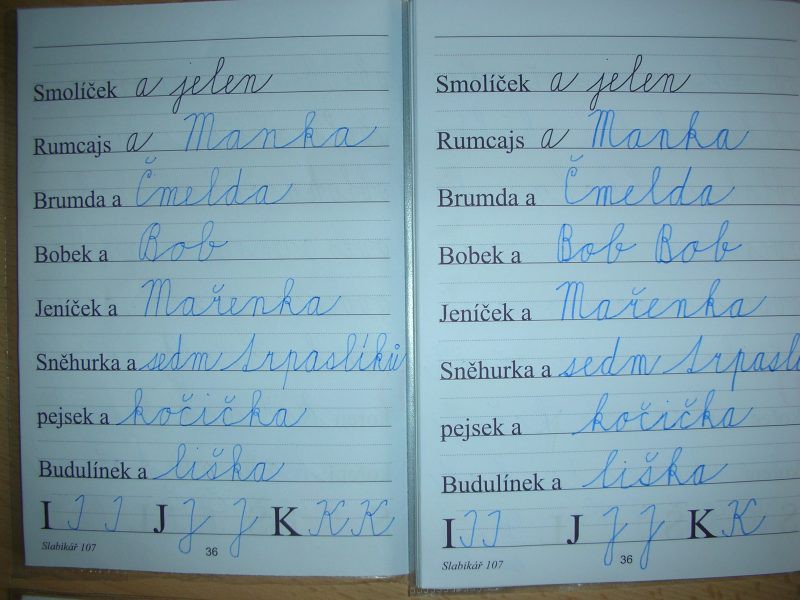 Smolíček a jelen
Rumcajs a Manka
Brumda a Čmelda
Bobek a Bob
Jeníček a Mařenka
Sněhurka a sedm trpaslíků
pejsek a kočička
Budulínek a liška
I I I J J J K K K
Slabikář 107
36
Smolíček a jelen
Rumcajs a Manka
Brumda a Čmelda
Bobek a Bob Bob
Jeníček a Mařenka
Sněhurka a sedm trpaslí
pejsek a kočička
Budulínek a liška
I I I J J J K K
Slabikář 107
36